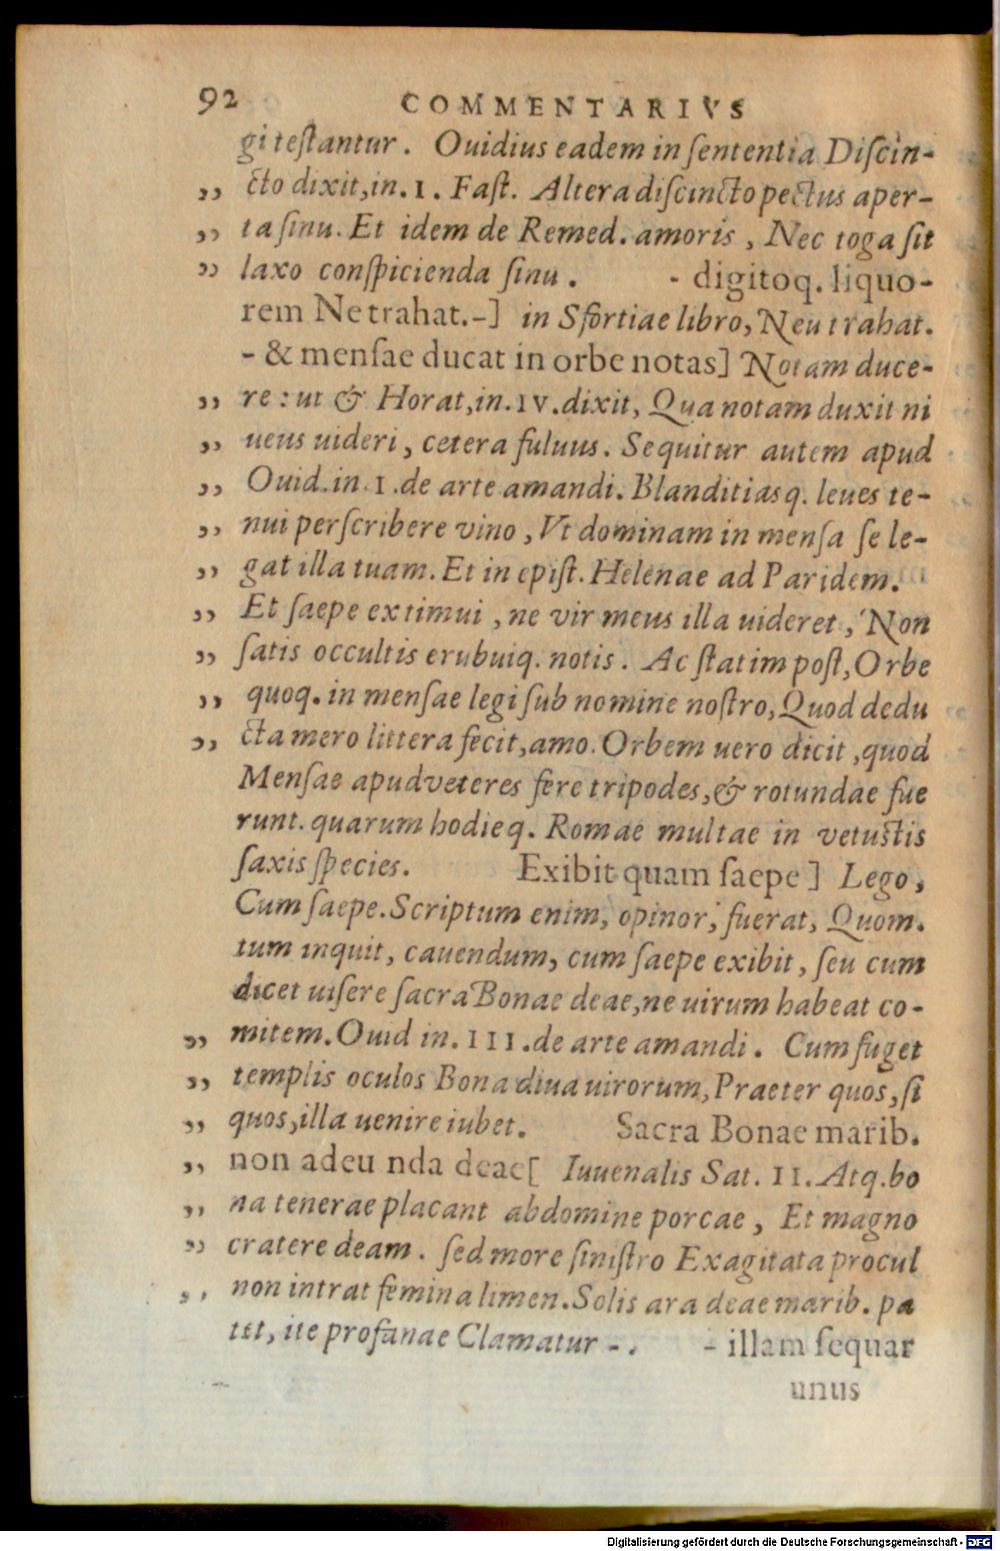 92 COMMENTARIVS
gi teſtantur. Ouidius eadem in ſententia Diſcin-
„ cto dixit, in. I. Faſt. Altera diſcincto pectus aper-
„ ta ſinu. Et idem de Remed. amoris, Nec toga ſit
„ laxo conſpicienda ſinu. - digitoq. liquo-
rem Ne trahat.-] in Sfortiae libro, Neu trahat.
- & menſae ducat in orbe notas] Notam duce-
„ re: ut & Horat, in. IV. dixit, Qua notam duxit ni
„ ueus uideri, cetera fuluus. Sequitur autem apud
„ Ouid. in. I. de arte amandi. Blanditiasq. leues te-
„ nui perſcribere vino, Vt dominam in menſa ſe le-
„ gat illa tuam. Et in epiſt. Helenae ad Paridem.
„ Et ſaepe extimui, ne vir meus illa uideret, Non
„ ſatis occultis erubuiq. notis. Ac ſtatim poſt, Orbe
„ quoq. in menſae legi ſub nomine noſtro, Quod dedu
„ cta mero littera fecit, amo. Orbem uero dicit, quod
Menſae apud veteres fere tripodes, & rotundae fue
runt. quarum hodieq. Romae multae in vetuſtis
ſaxis ſpecies. Exibit quam ſaepe] Lego,
Cum ſaepe. Scriptum enim, opinor, fuerat, Quom.
tum inquit, cauendum, cum ſaepe exibit, ſeu cum
dicet uiſere ſacra Bonae deae, ne uirum habeat co-
„ mitem. Ouid in. III. de arte amandi. Cum fuget
„ templis oculos Bona diua uirorum, Praeter quos, ſi
„ quos, illa uenire iubet. Sacra Bonae marib.
„ non adeu nda deae[ Iuuenalis Sat. II. Atq. bo
„ na tenerae placant abdomine porcae, Et magno
„ cratere deam. ſed more ſiniſtro Exagitata procul
„ non intrat femina limen. Solis ara deae marib. pa
tet, ite profanae Clamatur -. - illam ſequar
unus
Digitalisierung gefördert durch die Deutsche Forschungsgemeinschaft - DFG